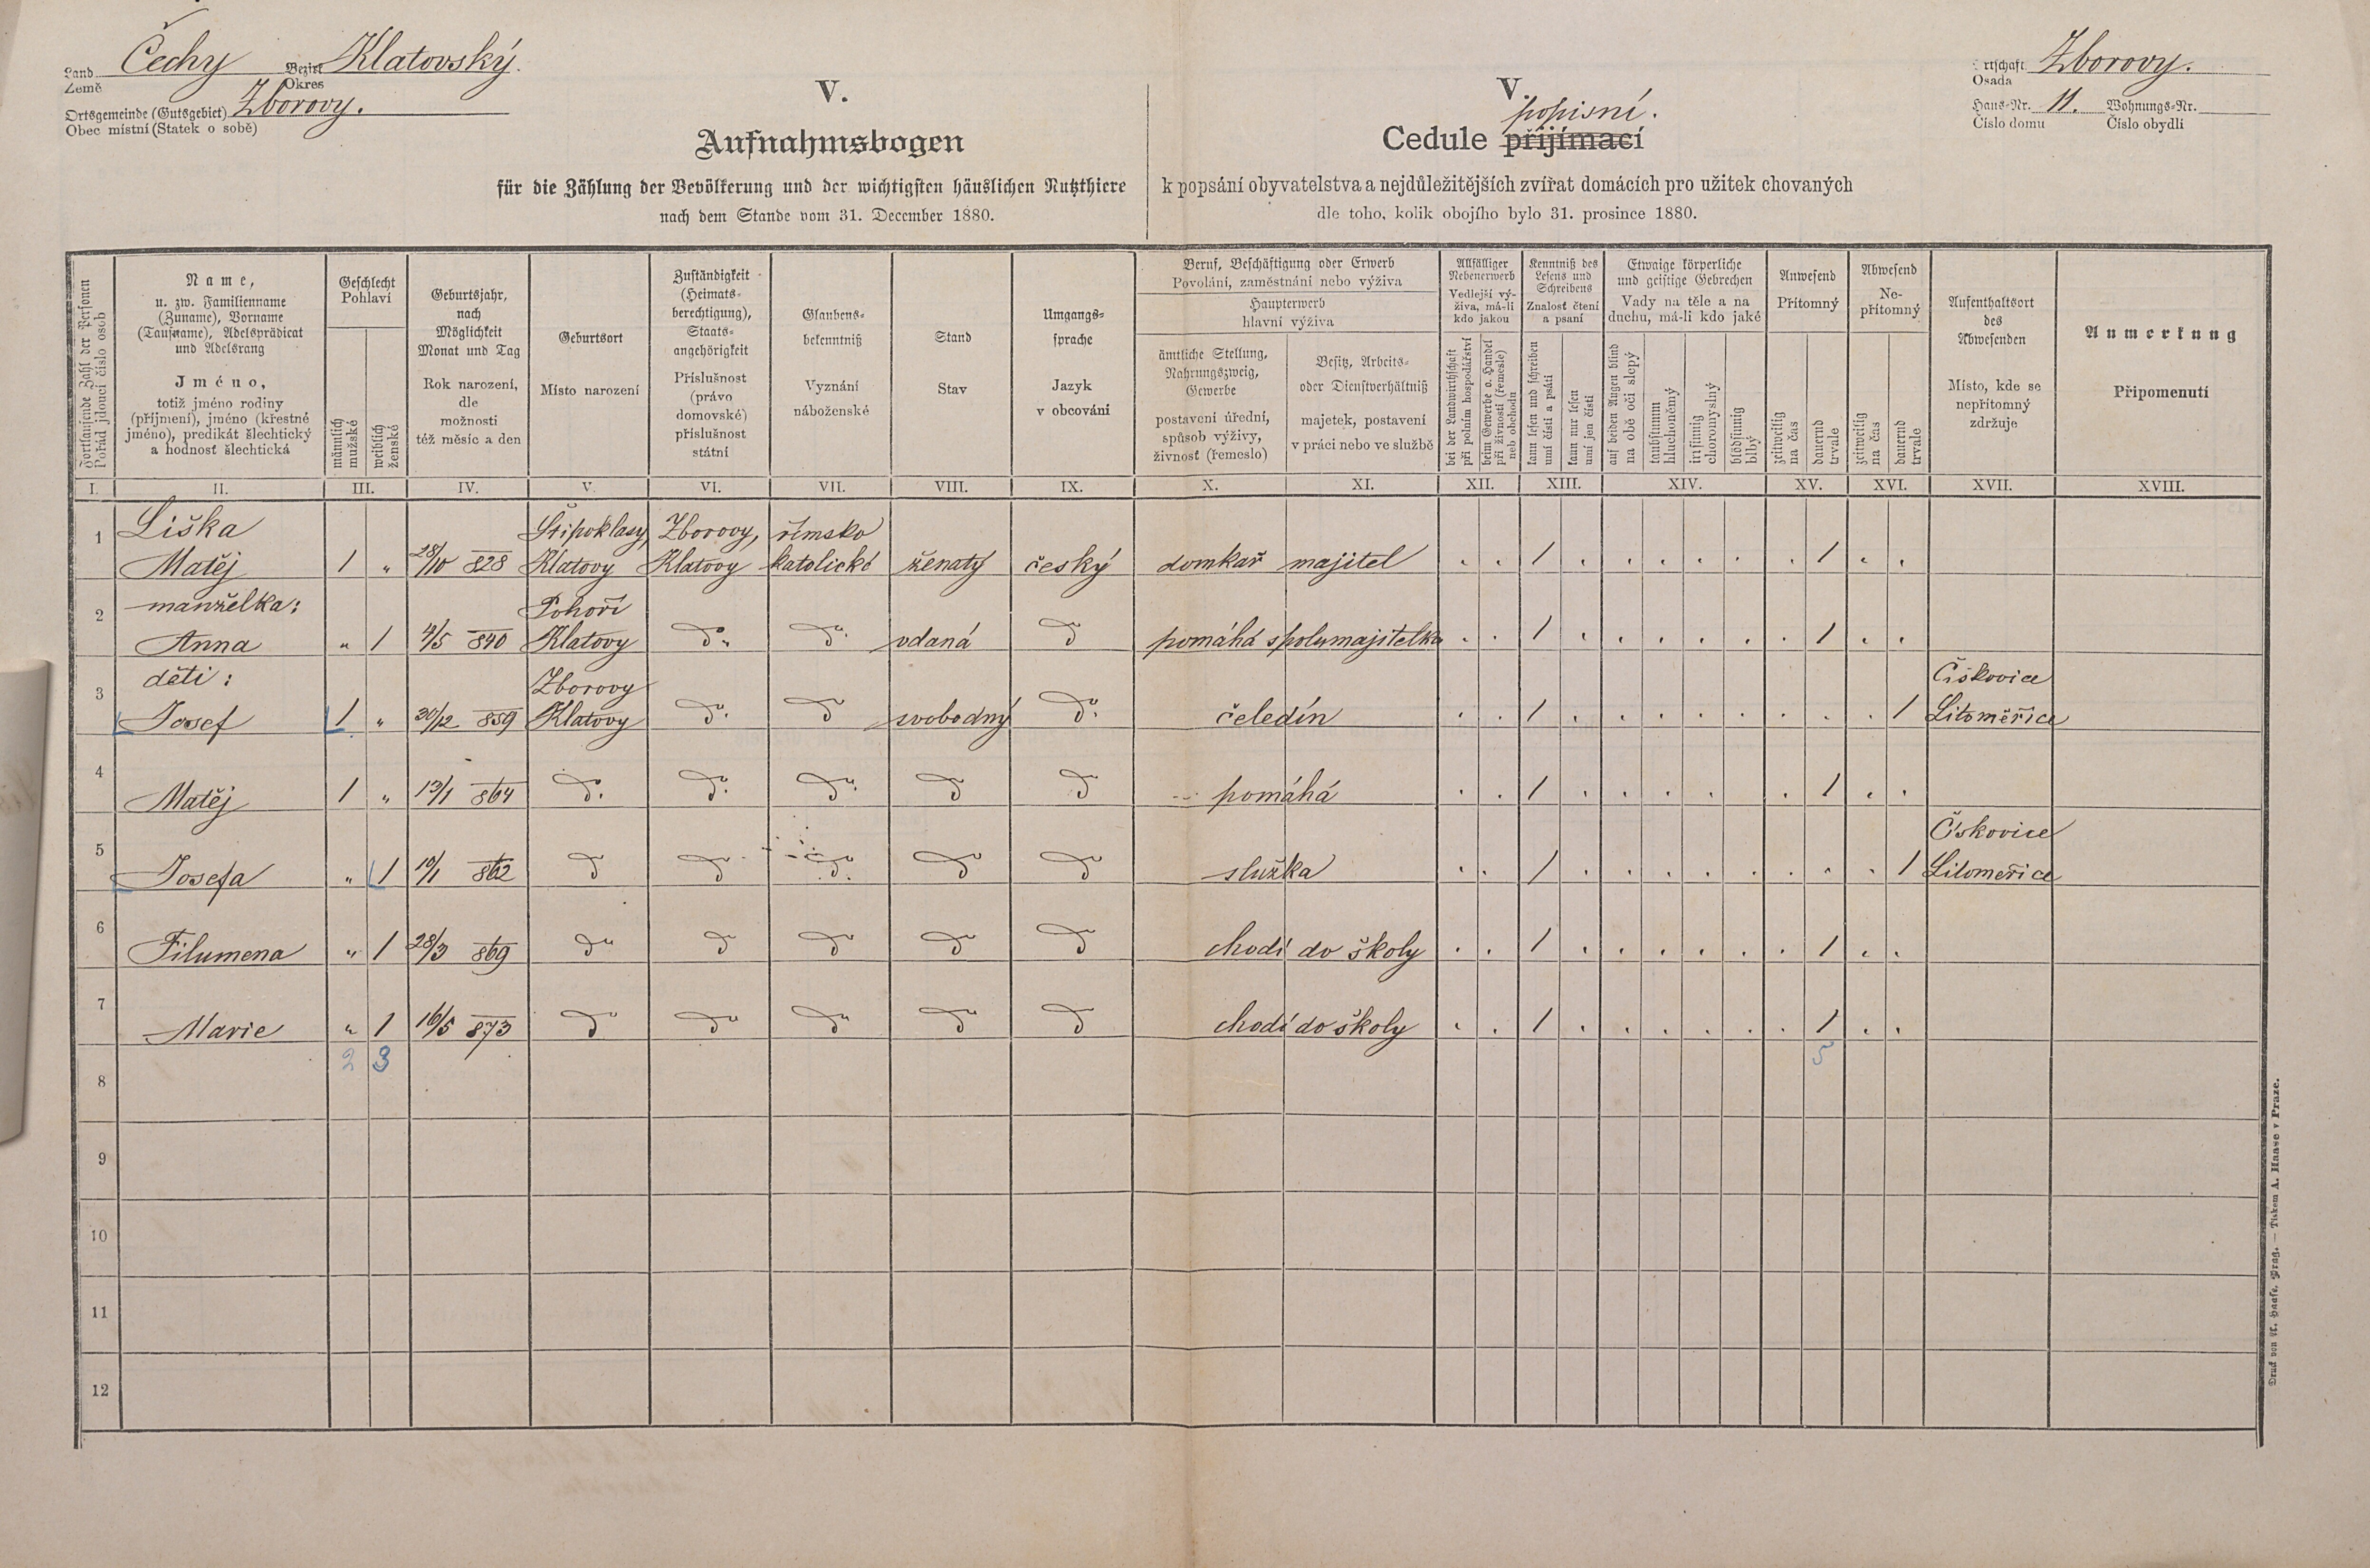 Land Čechy Bezirk Klatovský.
Země Okres
Ortsgemeinde (Gutsgebiet) Zborovy.
Obec místní (Statek o sobě)
V.
Aufnahmsbogen
für die Zählung der Bevölkerung und der wichtigsten häuslichen Nutzthiere
nach dem Stande vom 31. December 1880.
V.
popisní.
Cedule přijímací
k popsání obyvatelstva a nejdůležitějších zvířat domácích pro užitek chovaných
dle toho, kolik obojího bylo 31. prosince 1880.
rtschaft Zborovy.
Osada
Haus-Nr. 11. Wohnungs-Nr.
Číslo domu Číslo obydlí
Fortlaufende Zahl der Personen
Pořád jdoucí číslo osob
Name,
u. zw. Familienname
(Zuname), Vorname
(Taufname), Adelsprädicat
und Adelsrang
Jméno,
totiž jméno rodiny
(příjmení), jméno (křestné
jméno), predikát šlechtický
a hodnost šlechtická
Geschlecht
Pohlaví
männlich
mužské
weiblich
ženské
Geburtsjahr,
nach
Möglichkeit
Monat und Tag
Rok narození,
dle
možnosti
též měsíc a den
Geburtsort
Místo narození
Zuständigkeit
(Heimats-
berechtigung),
Staats-
angehörigkeit
Příslušnost
(právo
domovské)
příslušnost
státní
Glaubens-
bekenntniß
Vyznání
náboženské
Stand
Stav
Umgangs-
sprache
Jazyk
v obcování
Beruf, Beschäftigung oder Erwerb
Povolání, zaměstnání nebo výživa
Haupterwerb
hlavní výživa
ämtliche Stellung,
Nahrungszweig,
Gewerbe
postavení úřední,
spůsob výživy,
živnost (řemeslo)
Besitz, Arbeits-
oder Dienstverhältniß
majetek, postavení
v práci nebo ve službě
Allfälliger
Nebenerwerb
Vedlejší vý-
živa, má-li
kdo jakou
bei der Landwirthschaft
při polním hospodářství
beim Gewerbe o. Handel
při živnosti (řemesle)
neb obchodu
Kenntniß des
Lesens und
Schreibens
Znalost čtení
a psaní
kann lesen und schreiben
umí čísti a psáti
kann nur lesen
umí jen čísti
Etwaige körperliche
und geistige Gebrechen
Vady na těle a na
duchu, má-li kdo jaké
auf beiden Augen blind
na obě oči slepý
taubstumm
hluchoněmý
irrsinnig
choromyslný
blödsinnig
blbý
Anwesend
Přítomný
zeitweilig
na čas
dauernd
trvale
Abwesend
Ne-
přítomný
zeitweilig
na čas
dauernd
trvale
Aufenthaltsort
des
Abwesenden
Místo, kde se
nepřítomný
zdržuje
Anmerkung
Připomenutí
I. II. III. IV. V. VI. VII. VIII. IX. X. XI. XII. XIII. XIV. XV. XVI. XVII. XVIII.
1 Liška Štipoklasy, Zborovy, římsko
Matěj 1 „ 28/10 828 Klatovy Klatovy katolické ženatý český domkař majitel . . 1 . . . . . . 1 . .
2 manželka: Pohoří
Anna „ 1 4/5 840 Klatovy do. do. vdaná do pomáhá spolumajitelka . . 1 . . . . . . 1 . .
3 děti: Zborovy Čiškovice
Josef 1 „ 30/12 859 Klatovy do. do svobodný do. čeledín . . 1 . . . . . . . . 1 Litoměřice
4 Matěj 1 „ 13/1 864 do. do. do. do do pomáhá . . 1 . . . . . 1 . .
5 Čiskovice
Josefa „ 1 10/1 862 do do do. do do služka . . 1 . . . . . . . . 1 Litoměřice
6 Filumena „ 1 28/3 869 do do do do do chodí do školy . . 1 . . . . . . 1 . .
7 Marie „ 1 16/5 873 do do do do do chodí do školy . . 1 . . . . . . 1 . .
2 3 5
8
9
10
11
12
Druck von A. Haase, Prag. — Tiskem A. Haase v Praze.